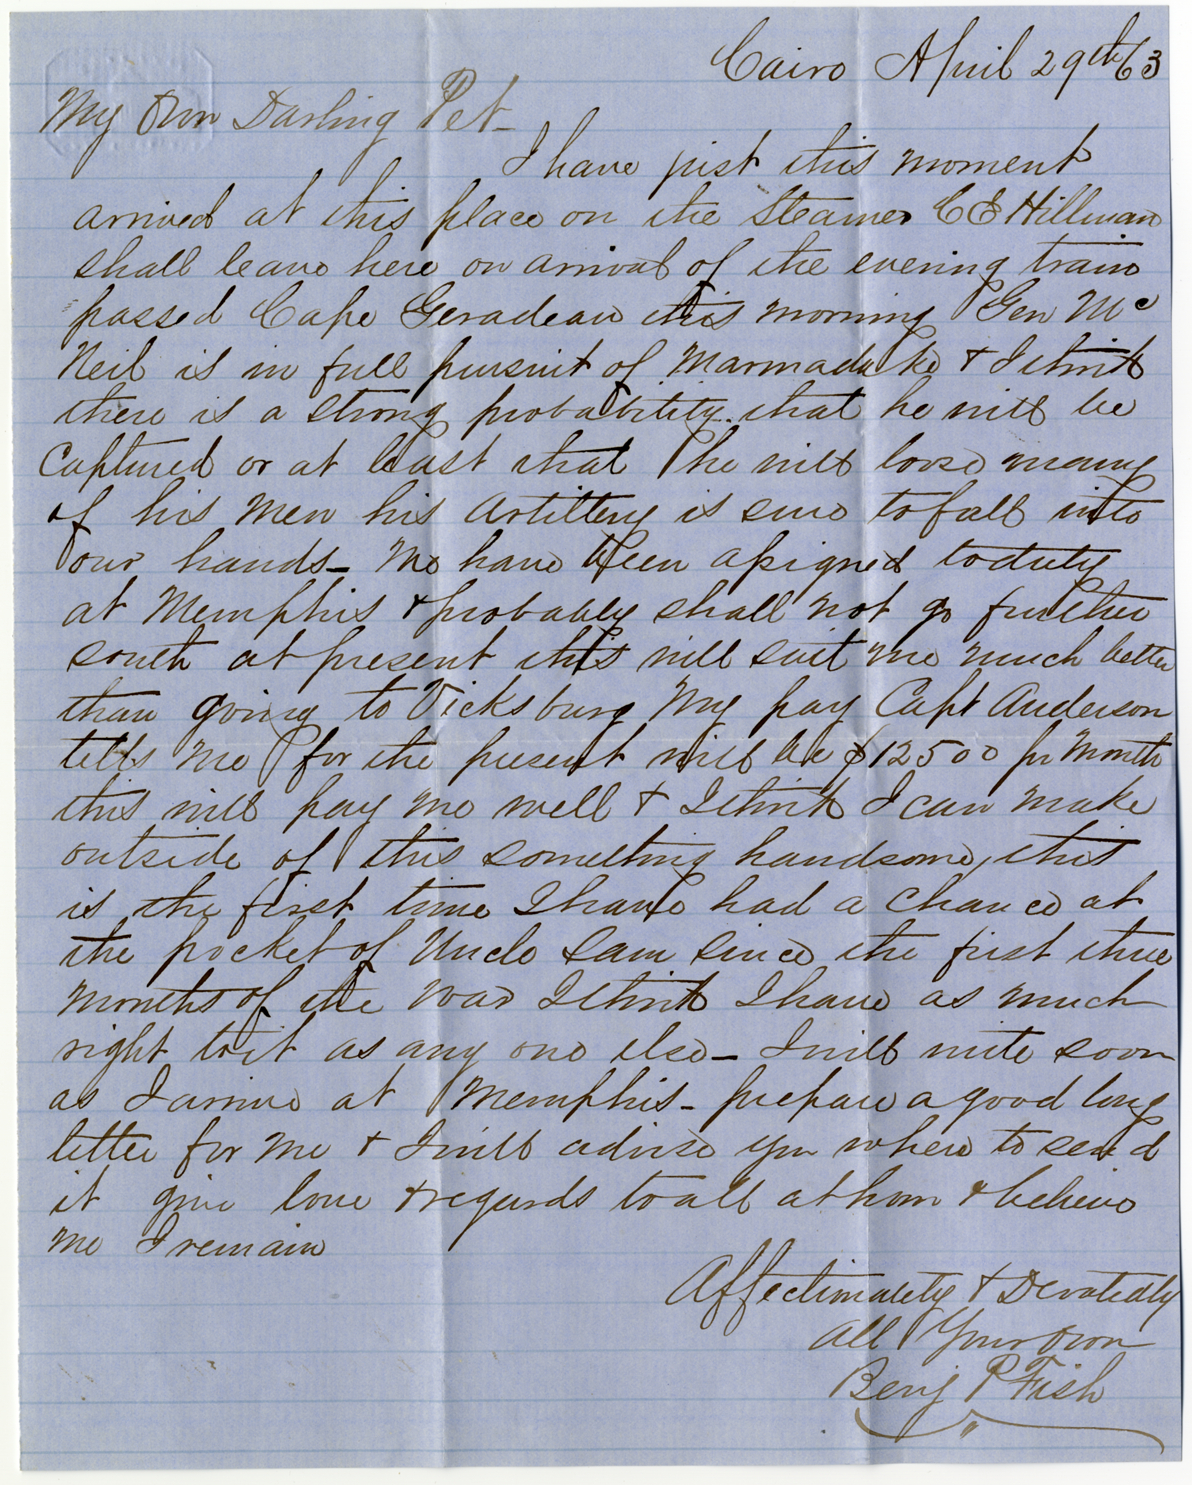 Cairo April 29th 63
My Own Darling Pet-
I have just this moment
arrived at this place on the Steamer C E Hillman
shall leave here on arrival of the evening train
passed Cape Geradeau this morning Gen Mc
Neil is in full pursuit of Marmaduke & I think
there is a strong probability that he will be
Captured or at least that he will loose many
of his men his Artillery is sure to fall into
our hands- Me have been assigned to duty
at Memphis & probably shall not go further
south at present this will suit me much better
than going to Vicksburg My pay Capt Anderson
tells me for the present will be $12500 pr Month
this will pay me well & I think I can make
outside of this something handsome, this
is the first time I have had a chance at
the pocket of Uncle Sam since the first three
months of the war I think I have as much
right to it as any one else- I will write soon
as I arrive at Memphis- prepare a good long
letter for me & I will advise you where to send
it give love & regards to all at home & believe
me I remain
Affectionately & Devotedly
All Your own
Benj P Fish